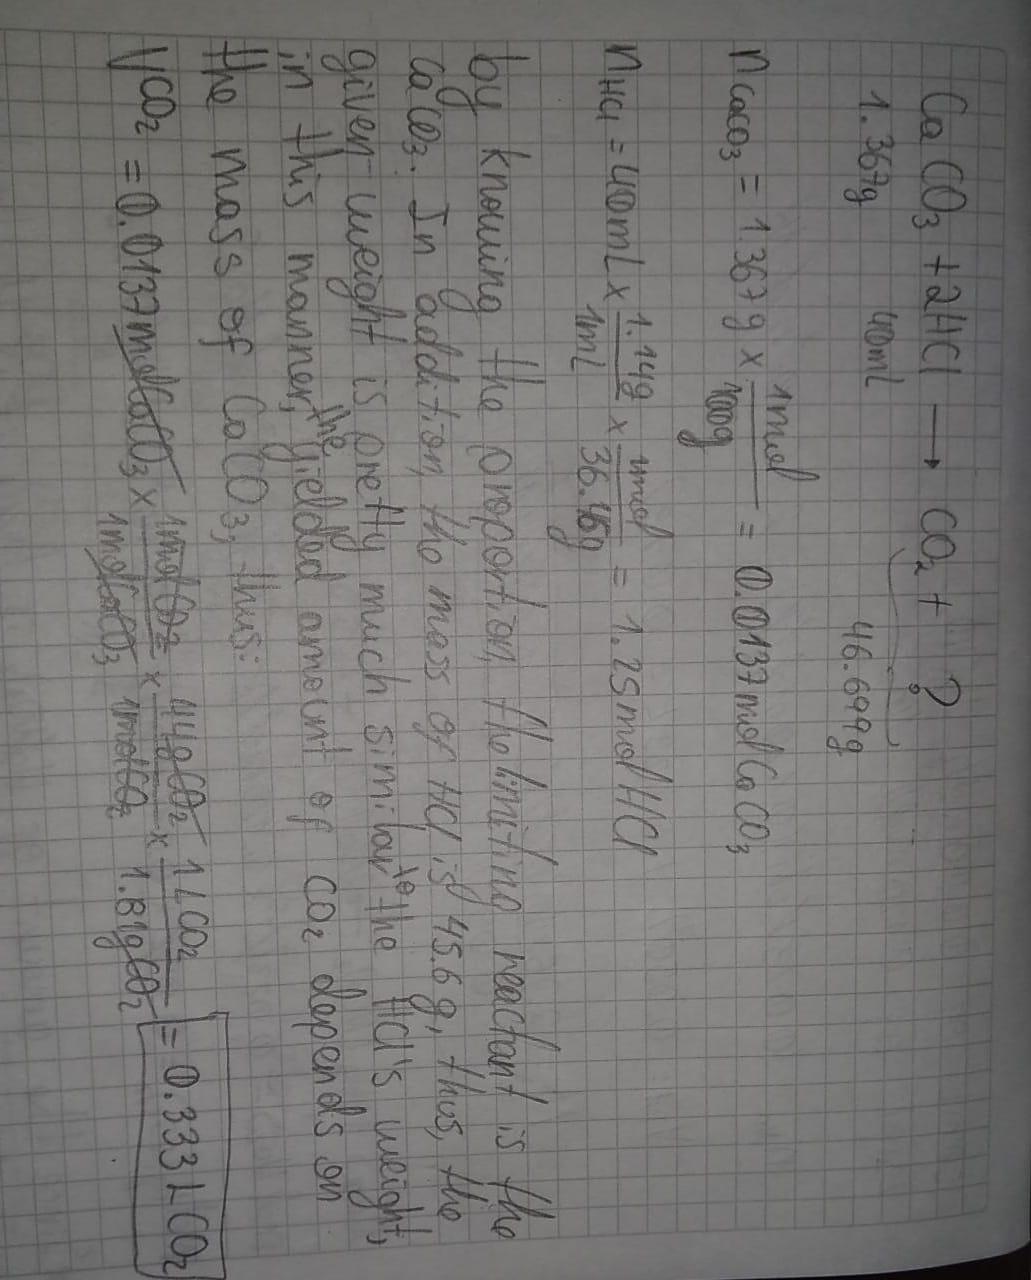 CaCO3 + 2HCl → CO2 + ?
1.367g 40ml 46.699g
nCaCO3 = 1.367g x 1mol/100g = 0.0137mol CaCO3
nHCl = 40mL x 1.14g/1ml x 1mol/36.46g = 1.25mol HCl
by knowing the proportion, the limiting reactant is the
CaCO3. In addition, the mass of HCl is 45.6g, thus, the
given weight is pretty much similar to the HCl's weight,
in this manner, the yielded amount of CO2 depends on
the mass of CaCO3, thus:
VCO2 = 0.0137molCaCO3 x 1molCO2/1molCaCO3 x 44gCO2/1molCO2 x 1LCO2/1.81gCO2 = 0.333LCO2